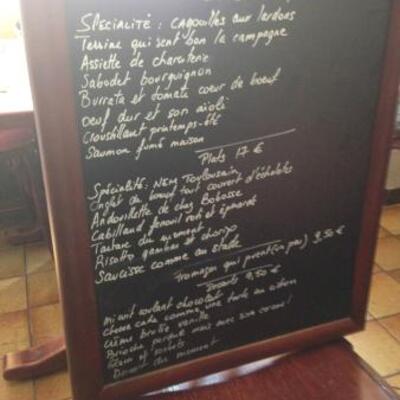 SPECIALITÉ : cagouilles aux lardons
Terrine qui sent bon la campagne
Assiette de charcuterie
Sabodet bourguignon
Burrata et tomate coeur de boeuf
Oeuf dur et son aïoli
Croustillant printemps-été
Saumon fumé maison
Plats 17 €
Spécialité : Nem Toulousain
Onglet de boeuf tout couvert d'échalotes
Andouillette de chez Bobosse
Cabillaud fenouil roti et
Tartare du moment
Risotto gambas et chorizo
Saucisse comme au stade
Fromages qui puent (un peu) 9,50 €
Desserts 9,50 €
mi cuit coulant chocolat
cheese cake comme une tarte au citron
crème brulée vanille
Brioche perdue mais avec son
glaces et sorbets
Dessert du moment